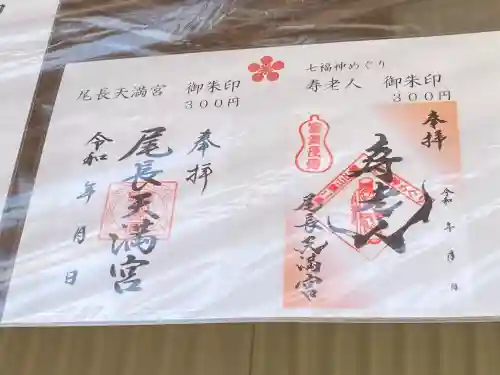 尾長天満宮 御朱印
300円
七福神めぐり
寿老人 御朱印
300円
奉拝
尾長天満宮
令和 年 月 日
奉拝
寿老人
令和 年 月 日
尾長天満宮